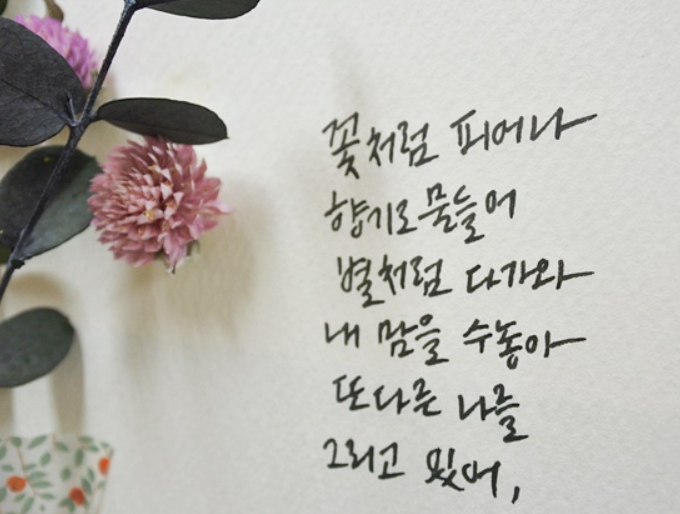 꽃처럼 피어나
향기로 물들어
별처럼 다가와
내 맘을 수놓아
또 다른 나를
그리고 있어,